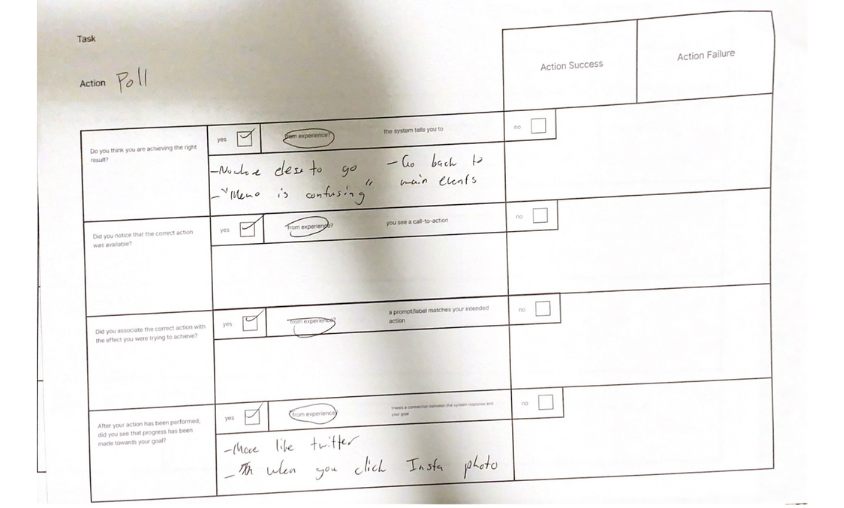 Task
Action Success
Action Failure
Action Poll
Do you think you are achieving the right
result?
yes
from experience?
the system tells you to
no
- else to go
- Go back to
main events
- "Memo is confusing"
Did you notice that the correct action
was available?
yes
from experience?
you see a call-to-action
no
Did you associate the correct action with
the effect you were trying to achieve?
yes
from experience?
a prompt/label matches your intended
action
no
After your action has been performed,
did you see that progress has been
made towards your goal?
yes
from experience?
there's a connection between the system response and
your goal
no
- More like twitter
- when you click Insta photo